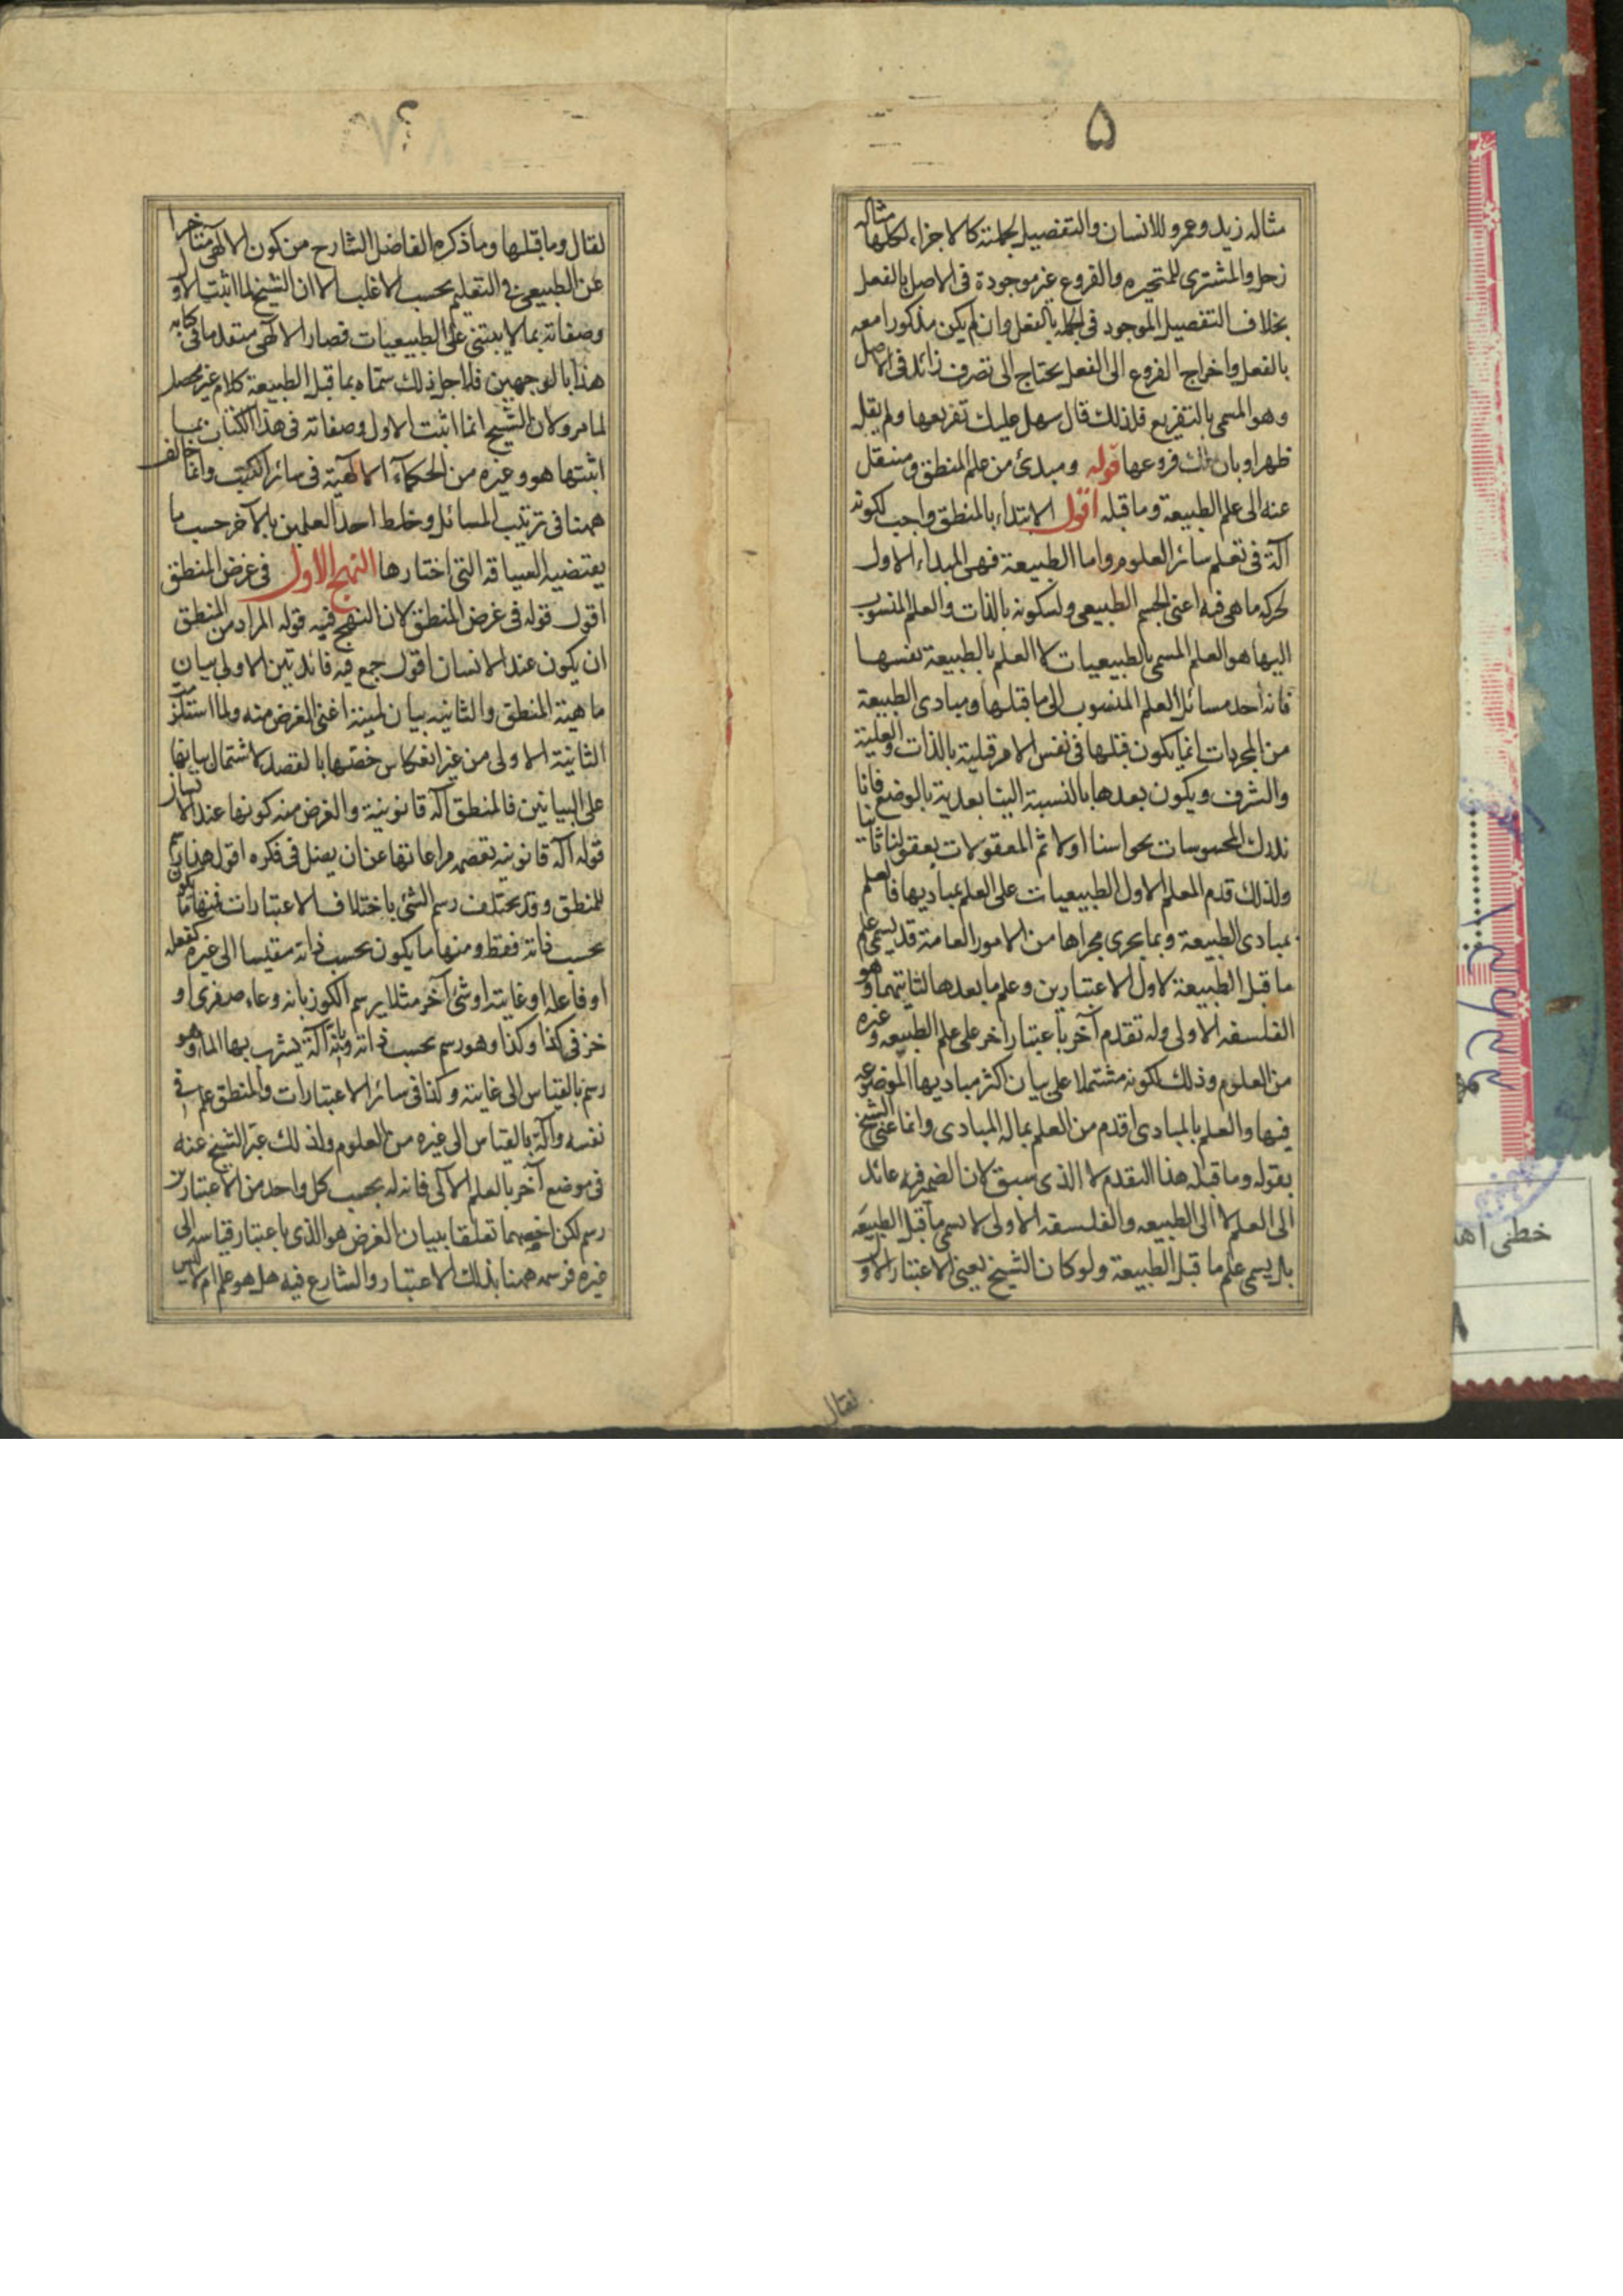 ۵
مثاله زيد وعمرو للانسان والتفصيل لجملته كالاجزاء لكلها مثاله
زحل والمشترى للمتحيره والفروع غير موجودة فى الاصل بالفعل
بخلاف التفصيل الموجود فى الجمله بالفعل وان لم يكن مذكورا معه
بالفعل واخراج الفروع الى الفعل يحتاج الى تصرف زائد فى الاصل
وهو المسمى بالتفريع فلذلك قال سهل عليك تفريعها ولم يقل
ظهر او بان لك فروعها قوله ومبدئ من علم المنطق ومنتقل
عنه الى علم الطبيعة وما قبله اقول الابتداء بالمنطق واجب لكونه
آلة فى تعلم سائر العلوم واما الطبيعة فهى المبداء الاول
لحركه ما هى فيه اعنى الجسم الطبيعى ولسكونه بالذات والعلم المنسوب
اليها هو العلم المسمى بالطبيعيات لا العلم بالطبيعة نفسها
فانه احد مسائل العلم المنسوب الى ما قبلها ومبادى الطبيعة
من المجردات انما يكون قبلها فى نفس الامر قبلية بالذات والعلية
والشرف ويكون بعدها بالنسبة الينا بعدية بالوضع فانا
ندرك المحسوسات بحواسنا اولا ثم المعقولات بعقولنا ثانيا
ولذلك قدم المعلم الاول الطبيعيات على العلم بمباديها فالعلم
بمبادى الطبيعة وبما يجرى مجراها من الامور العامة قد يسمى علم
ما قبل الطبيعة لاول الاعتبارين وعلم ما بعدها لثانيهما وهو
الفلسفه الاولى وله تقدم آخر باعتبار اخر على علم الطبيعه وغيره
من العلوم وذلك لكونه مشتملا على بيان اكثر مباديها الموضوعه
فيها والعلم بالمبادى اقدم من العلم بماله المبادى وانما عنى الشيخ
بقوله وما قبله هذا التقدم لا الذى سبق لان الضمير فيه عائد
الى العلم لا الى الطبيعه والفلسفه الاولى لا تسمى ما قبل الطبيعه
بل يسمى علم ما قبل الطبيعة ولو كان الشيخ يعنى الاعتبار الاول
لقال
لقال وما قبلها وما ذكره الفاضل الشارح من كون الالهى متأخرا
عن الطبيعى فى التعليم بحسب الاغلب الا ان الشيخ لما اثبت الاول
وصفاته بما لا يبتنى على الطبيعيات فصار الالهى متقدما فى كتابه
هذا بالوجهين فلاجل ذلك سماه بما قبل الطبيعة كلام غير محصل
لما مر ولان الشيخ انما اثبت الاول وصفاته فى هذا الكتاب بما
اثبتها هو وغيره من الحكماء الالهية فى سائر الكتب وانما خالف
ههنا فى ترتيب المسائل وخلط احد العلمين بالآخر حسب ما
يقتضيه السياقه التى اختارها النهج الاول فى غرض المنطق
اقول قوله فى غرض المنطق لان النهج فيه قوله المراد من المنطق
ان يكون عند الانسان اقول جمع فيه فائدتين الاولى بيان
ماهية المنطق والثانيه بيان لميته اعنى الغرض منه ولما استلزمت
الثانية الاولى من غير انعكاس خصها بالقصد لاشتمال بيانها
على البيانين فالمنطق آلة قانونية والغرض منه كونها عند الانسان
قوله آلة قانونيه تعصمه مراعاتها عن ان يضل فى فكره اقول هذا رسم
للمنطق وقد يختلف رسم الشئ باختلاف الاعتبارات فمنها ما يكون
بحسب ذاته فقط ومنها ما يكون بحسب ذاته مقيسا الى غيره كفعله
او فاعله او غايته او شئ آخر مثلا يرسم الكوز بانه وعاء صفرى او
خزفى كذا وكذا وهو رسم بحسب ذاته وبانه آلة يشرب بها الماء وهو
رسم بالقياس الى غايته وكذا فى سائر الاعتبارات والمنطق علم فى
نفسه وآلة بالقياس الى غيره من العلوم ولذلك عبر الشيخ عنه
فى موضع آخر بالعلم الآلى فانه له بحسب كل واحد من الاعتبارين
رسم لكن اخصهما تعلقا ببيان الغرض هو الذى باعتبار قياسه الى
غيره فرسمه ههنا بذلك الاعتبار والشارع فيه هل هو علم ام لا ليس
خطى اهد